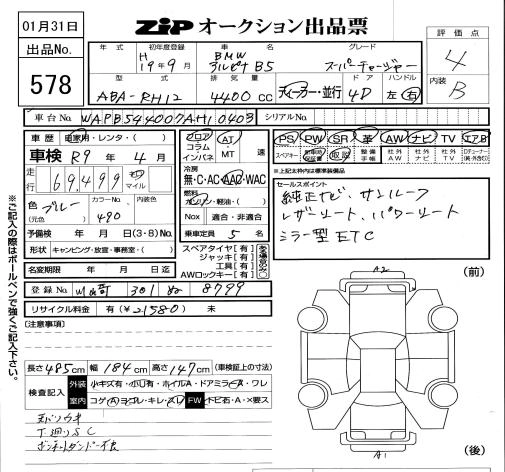 01月31日
ZIP オークション出品票
出品No.
578
年式 初年度登録 車名 グレード
H 19年9月 BMW アルピナ B5 スーパーチャージャー
型式 排気量 ドア ハンドル
ABA-RH12 4400cc ディーラー・並行 4D 左 右
評価点
4
内装
B
車台No. WAPB544007AH10403 シリアルNo.
車歴 自家用・レンタ・( )
車検 R9年4月
走行 69,499 マイル
色 ブルー カラーNo. 490 内装色
(元色
予備検 月 日 (3・8) No.
形状 キャンピング・放宣・事務室・( )
名変期限 年 月 日迄
フロア コラム インパネ AT MT 速
冷房
無・C・AC・AAC・WAC
燃料
ガソリン・軽油・( )
NOx 適合・非適合
乗車定員 5名
スペアタイヤ[有]
ジャッキ[有]
工具[有]
AWロックキー[有]
ある場合のみ○
PS PW SR 革 AW ナビ TV エアB
スペアキー 取説 整備手帳 社外AW 社外ナビ
※上記太枠内は標準装備品
セールスポイント
純正ナビ、サンルーフ
レザーシート、パワーシート
ミラー型ETC
登録No. 301 8799
リサイクル料金 有(¥21580) 無
[注意事項]
長さ485cm 幅184cm 高さ147cm (車検証上の寸法)
検査記入 外装 小キズ有・小凹有・ホイルA・ドアミラーA・ワレ
室内 コゲA・ヨゴレ・キレ・スレ FW トビ石・A・×要ス
下廻りSC
ボンネットダンパー不良
A2
(前)
A1
(後)
※ご記入の際はボールペンで強くご記入下さい。